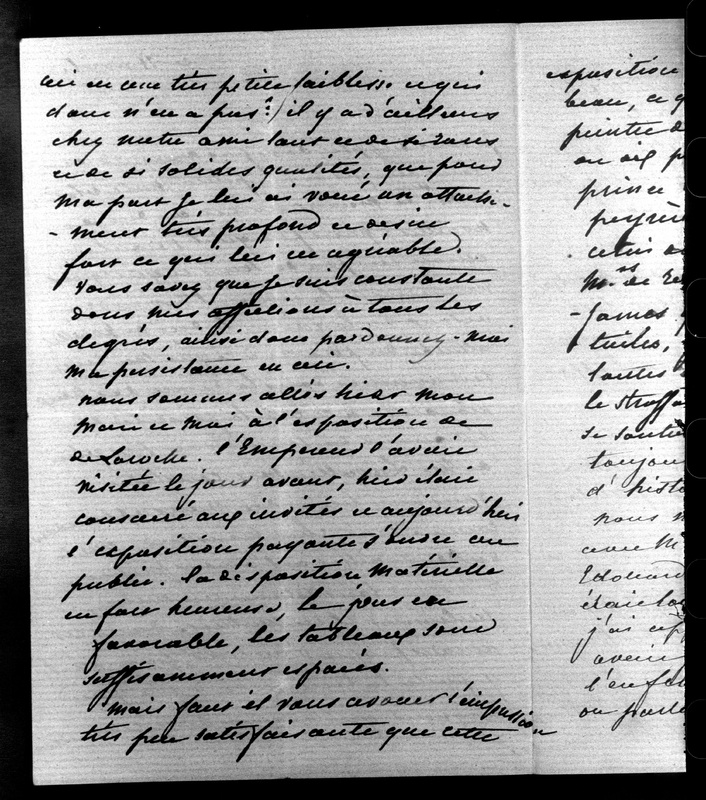 ceci est une très petite faiblesse et qui
donc n'en a pas? il y a d'ailleurs
chez notre ami tant et de si rares
et de si solides qualités, que pour
ma part je lui ai voué un attache-
- ment très profond et désire
fort ce qui lui est agréable.
Vous savez que je suis constante
dans mes affections à tous les
degrés, ainsi donc pardonnez-moi
ma persistance en ceci.
nous sommes allés hier mon
mari et moi à l'exposition de
de Laroche. l'Empereur l'avait
visitée le jour avant, hier était
consacré aux invités et aujourd'hui
l'exposition payante s'ouvre au
public. la disposition matérielle
est fort heureuse, le jour est
favorable, les tableaux sont
suffisamment espacés.
mais faut il vous avouer l'impression
très peu satisfaisante que cette
exposition
beau, ce q
peintre d
un œil p
prince
peyrè
celui
Mrs de
- James
tuiles,
toutes
le
se
toujour
d'histo
nous
avec M
Edouard
était
j'ai
avait
l'enfa
on parle